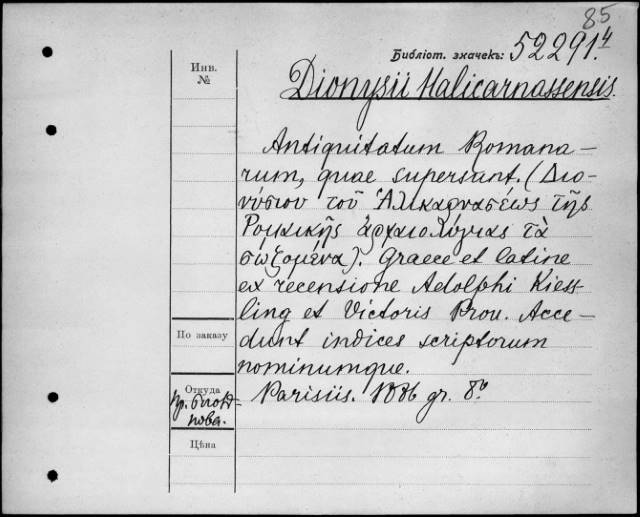 85
Инв.
№
Библіот. значекъ: 52291.4
Dionysii Halicarnassensis.
Antiquitatum Romana-
rum, quae supersunt. (Διο-
νύσιου τοῦ Ἁλικαρνασέως τῆς
Ρομαικῆς ἀρχαιολόγιας τὰ
σωζομένα). Graece et latine
ex recensione Adolphi Kiess-
ling et Victoris Prou. Acce-
dunt indices scriptorum
nominumque.
Parisiis. 1886 gr. 8º
По заказу
Откуда
Цѣна